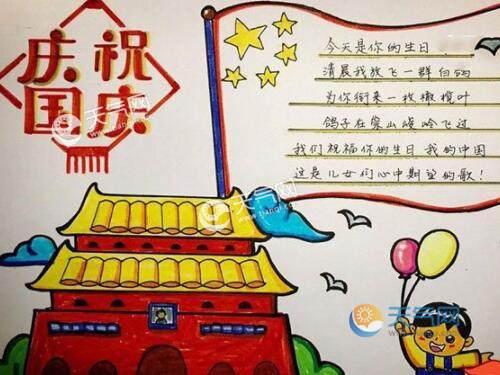 庆祝
国庆
今天是你的生日
清晨我放飞一群白鸽
为你衔来一枚橄榄叶
鸽子在崇山峻岭飞过
我们祝福你的生日 我的中国
这是儿女们心中期望的歌!
天气网
天气网
www.tianqi.com
天气网